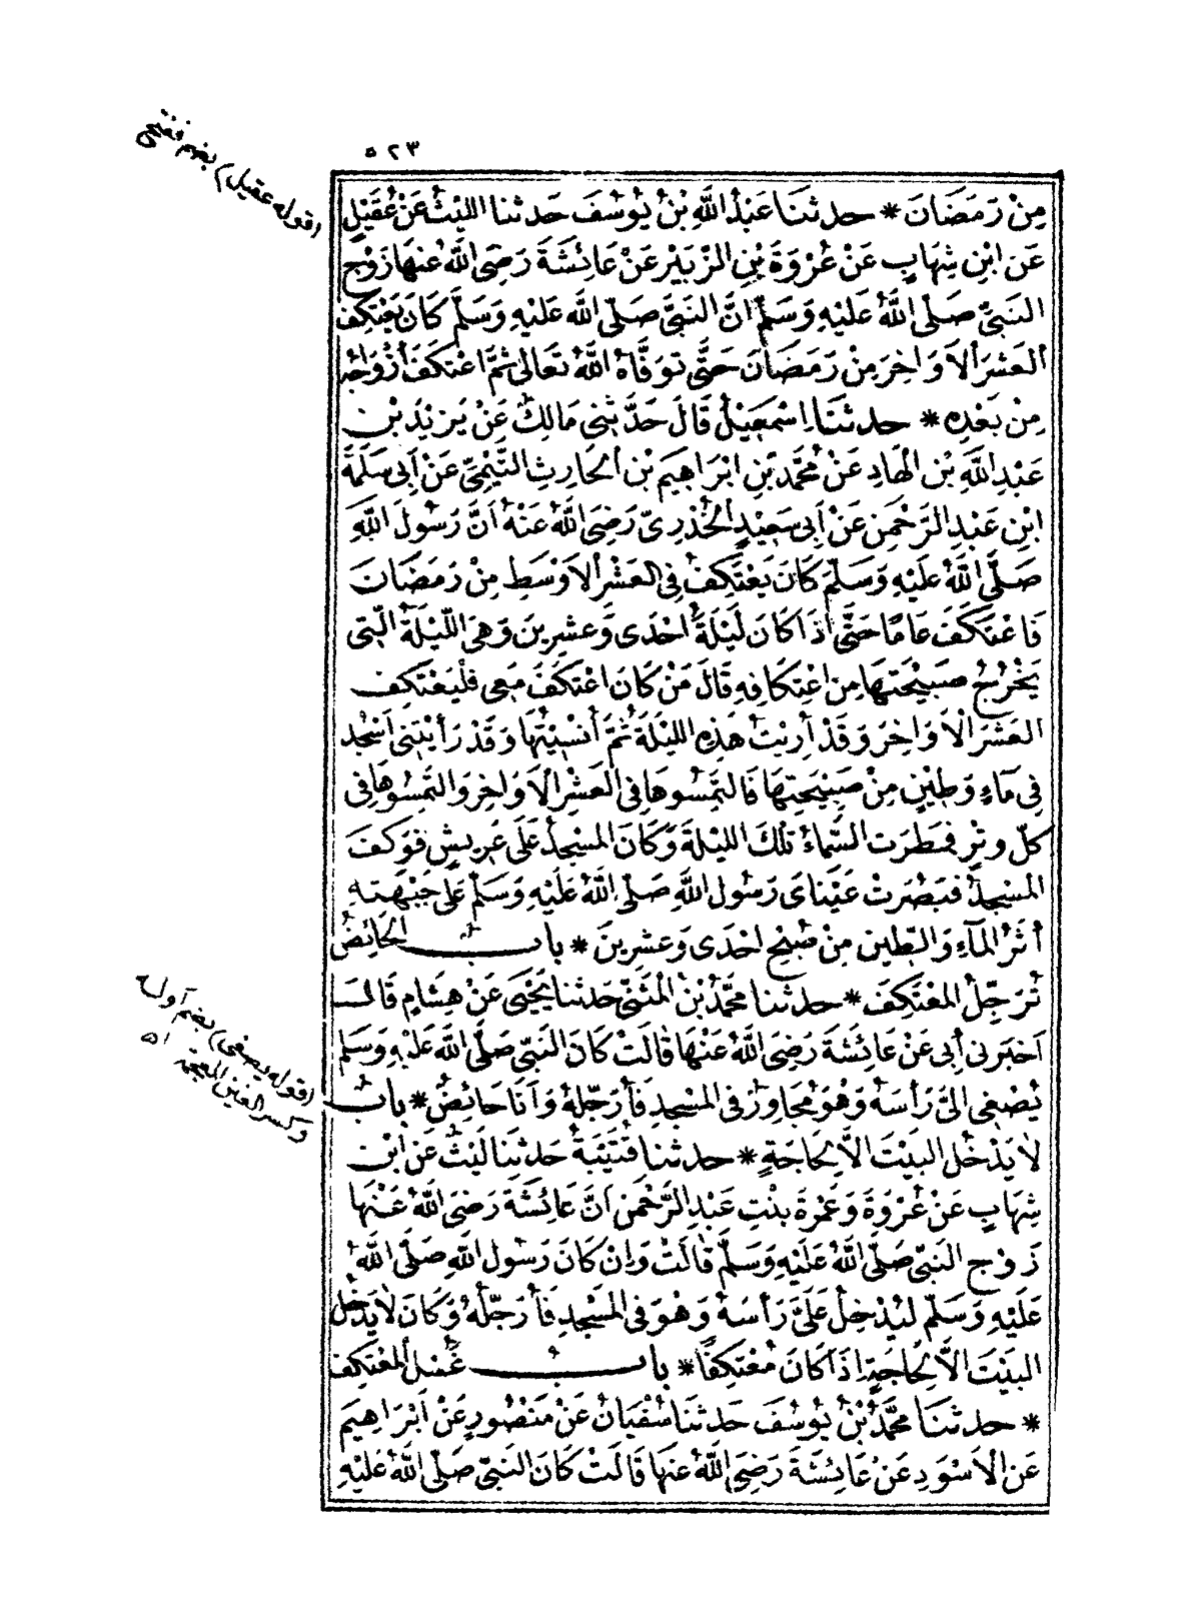 ٥٢٣
(قوله عقيل) بضم ففتح
مِنْ رَمَضَانَ * حدثنَا عَبْدُ اللَّهِ بْنُ يُوسُفَ حَدثنا اللَّيْثُ عَنْ عُقَيْلٍ
عَن ابْنِ شِهَابٍ عَنْ عُرْوَةَ بْنِ الزُّبَيْرِ عَنْ عَائِشَةَ رَضِىَ اللَّهُ عَنهَا زَوْجِ
النَبِيِّ صَلّى اللَّهُ عَلَيْهِ وَسَلَّم انَّ النَبِيَّ صَلّى اللَّه عَلَيْهِ وَسَلَّم كَانَ يَعْتَكِف
العَشْرَ الاَوَاخِرَ مِنْ رَمَضَانَ حَتَّى تَوَفَّاهُ اللَّهُ تَعَالىٰ ثمَّ اعْتكَفَ أَزْوَاجُهُ
مِنْ بَعْدِهِ * حدثنَا اِسْمٰعِيْلُ قَالَ حَدَّثَنِى مَالِكٌ عَنْ يَزِيْدَ بْن
عَبْدِ اللَّهِ بْن الْهَادِ عَنْ مُحمَّد بْنِ ابْرَاهِيمَ بْنِ الحَارِثِ التَّيْمِيِّ عَنْ اَبِى سَلَمَةَ
ابْنِ عَبْدِ الرَّحْمٰنِ عَنْ اَبِى سَعِيْدٍ الخُدْرِىّ رَضِىَ اللَّهُ عَنْهُ اَنَّ رَسُولَ اللَّهِ
صَلَّى اللَّهُ عَلَيْهِ وَسَلَّمَ كَانَ يَعْتَكِفُ فِى العَشْرِ الاَوْسَطِ مِنْ رَمَضَانَ
فَاعْتَكَفَ عَامًا حَتَّى اذَا كَانَ لَيْلَةُ احْدَى وَعِشرِينَ وَهِىَ اللّيْلَةُ الّتِى
يَخْرُجُ صَبِيْحَتَهَا مِن اعْتِكَافِهِ قَالَ مَنْ كَانَ اعْتَكَفَ مَعِى فَلْيَعْتَكِف
العَشرَ الْاَوَاخِرَ وَقَدْ اُرِيْتُ هَذِهِ اللّيْلَةَ ثُمَّ أُنْسِيْتُهَا وَقَدْ رَأيْتُنِى اَسْجُد
فِى مَاءٍ وَطِيْنٍ مِنْ صَبِيْحَتِهَا فَالتَمِسُوهَا فِى العَشْرِ الاَوَاخِرِ وَالتَمِسُوهَا فِى
كلّ وِتْرٍ فمَطَرَت السَّمَاءُ تلْكَ الليْلةَ وَكَانَ المَسْجِدُ عَلَى عَرِيشٍ فَوَكَفَ
المَسْجِدُ فبَصُرَتْ عَيْنَاىَ رَسُولَ اللَّهِ صَلّى اللَّهُ عَلَيْهِ وَسَلّم عَلَى جَبْهَتِهِ
أثَرُ المَآءِ وَالطِّينِ مِنْ صُبْحِ احْدَى وَعشرِينَ * باب الحَائِضُ
تُرَجِّلُ المُعْتَكِفَ * حدثنا مُحمَّدُ بْنُ المُثَنَّى حَدثنا يَحْيَى عَنْ هِشامٍ قَالَ
اَخْبَرَنِى أَبِى عَنْ عَائِشَةَ رَضِىَ اللَّهُ عَنْهَا قَالَتْ كَانَ النَبِىّ صَلَّى اللَّهُ عَلَيْهِ وَسَلم
يُصْغِى الَىَّ رَأسَهُ وَهُوَ مُجَاوِرٌ فِى المَسْجِدِ فَأُرَجّلهُ وَاَنَا حَائِضٌ * باب
(قوله يصغى) بضم أوله
وكسر الغين المعجمة اه
لاَ يَدْخُل البَيْتَ الاَّ لِحَاجَةٍ * حدثنا قُتَيْبَةُ حَدثنَا لَيْثٌ عَن ابْن
شِهَابٍ عَنْ عُرْوَةَ وَعَمْرَةَ بنْتِ عَبْدِ الرَّحْمٰنِ اَنَّ عَائِشَةَ رَضِىَ اللَّهُ عَنْهَا
زَوْجِ النَبِىّ صَلَّى اللَّهُ عَلَيْهِ وَسَلَّم قَالَتْ وَاِنْ كَانَ رَسُول اللَّهِ صَلَّى اللَّهُ
عَلَيْهِ وَسَلّم لَيُدْخِلُ عَلَىَّ رَأسَهُ وَهْوَ فِى المَسْجِدِ فَأُرَجّلُهُ وَكَانَ لاَ يَدْخُل
البَيْتَ الاَّ لِحَاجَةٍ اِذَا كَانَ مُعْتَكِفًا * باب غَسْلِ المُعْتَكِفِ
* حدثنَا مُحمَّدُ بْنُ يُوسُفَ حَدثنَا سُفْيَانُ عَنْ مَنْصُورٍ عَنْ اِبْرَاهِيمَ
عَن الاَسْوَدِ عَنْ عَائِشَةَ رَضِىَ اللَّهُ عَنهَا قَالَتْ كَانَ النَبِىّ صَلّى اللَّهُ عَلَيْهِ